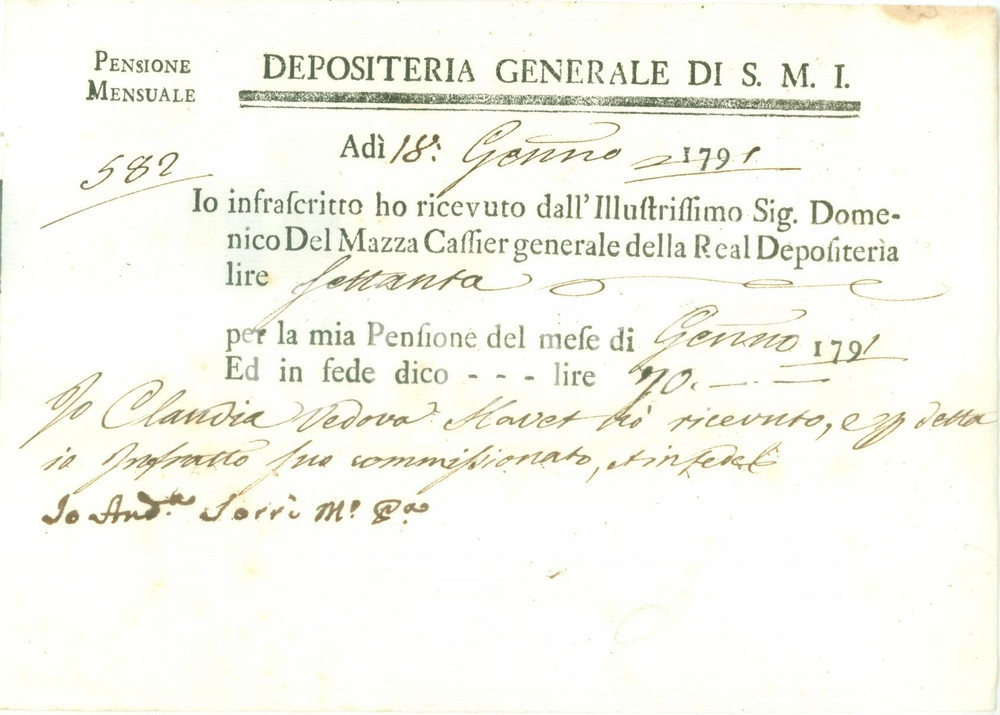 PENSIONE
MENSUALE
DEPOSITERIA GENERALE DI S. M. I.
582
Adì 18: Genno 1791
Io infraſcritto ho ricevuto dall' Illuſtriſſimo Sig. Dome-
nico Del Mazza Caſſier generale della Real Depoſiterìa
lire ſettanta
per la mia Penſione del meſe di Genno 1791
Ed in fede dico - - - lire 70. — —
Io Claudia Vedova Mavet hò ricevuto, e p detta
io Infratto ſuo commiſsionato, et in fede
Io And.a Sorri M.o P.a